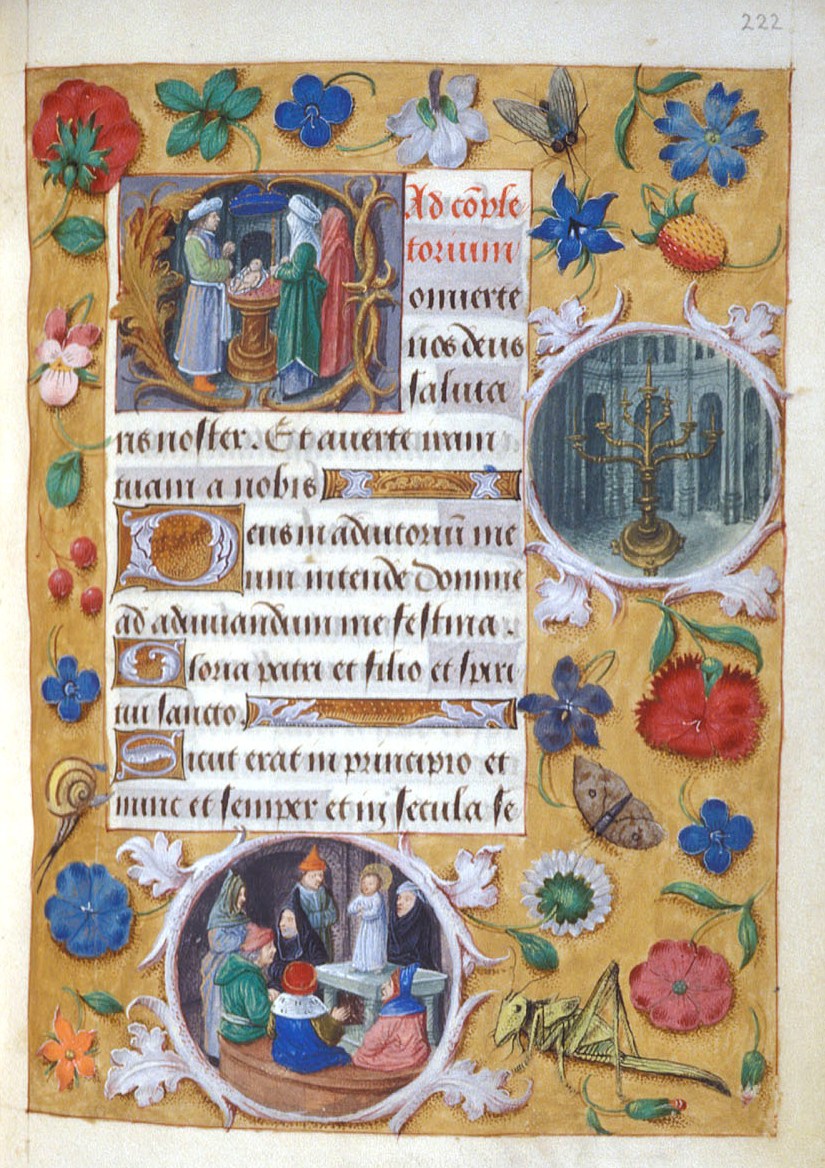 222
Ad cõple
torium
onuerte
nos deus
saluta
ris noster. Et auerte iram
tuam a nobis
Deus in adiutoriũ me
um intende domine
ad adiuuandum me festina.
Gloria patri et filio et spiri
tui sancto.
Sicut erat in principio et
nunc et semper et in secula se